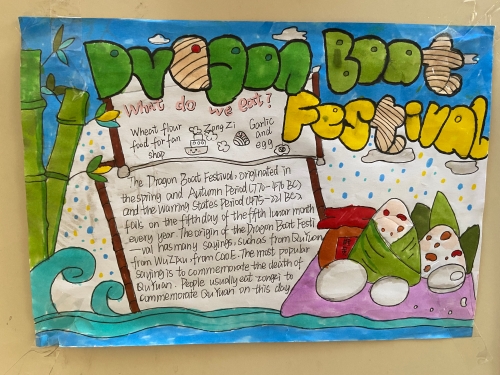 Dragon Boat
Festival
What do we eat?
Wheat flour
food for fan
shop
Zong Zi
Garlic
and
egg
The Dragon Boat Festival originated in
the spring and Autumn Period (770-476 BC)
and the Warring States Period (475-221 BC).
falls on the fifth day of the fifth lunar month
every year. The origin of the Dragon Boat Festi
-val has many sayings, such as from Qu Yuan
from Wu Zixu, from Cao E. The most popular
saying is to commemorate the death of
Qu Yuan. People usually eat zongzi to
commemorate Qu Yuan on this day